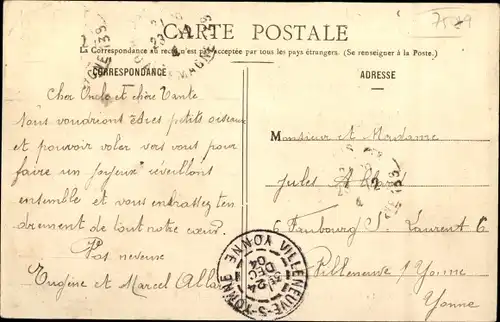 7589
CARTE POSTALE
La Correspondance au recto n'est pas acceptée par tous les pays étrangers. (Se renseigner à la Poste.)
CORRESPONDANCE
Cher Oncle et chère Tante
nous voudrions êtres petits oiseaux
et pouvoir voler vers vous pour
faire un joyeux réveillons
ensemble et vous endrassez ten
drement de tout notre cœur.
Vos neveux
Eugène et Marcel Allard
ADRESSE
Monsieur et Madame
Jules Allard
6 Faubourg St Laurent 6
Villeneuve s/ Yonne
Yonne
VILLENEUVE-S-YONNE YONNE
24
DEC
04